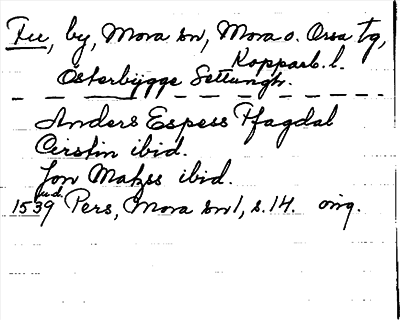 Fu, by, Mora sn, Mora o. Orsa tg,
Kopparb. l.
Österbygge Settungh.
Anders Espess Ffagdal
Cirstin ibid.
Jon Matzss ibid.
1539 Pers, Mora sn 1, s. 14. orig.